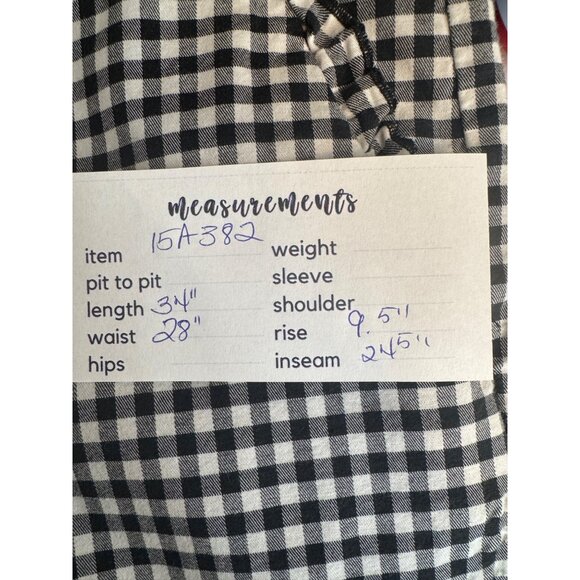 measurements
item 15A382
pit to pit
length 34"
waist 28"
hips
weight
sleeve
shoulder
rise 9.5"
inseam 245"